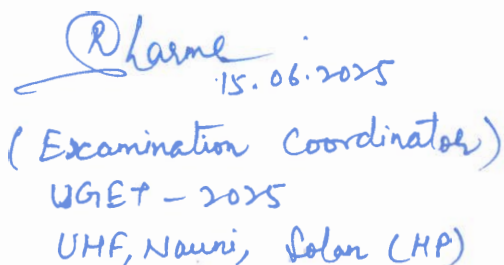 RSharma
15.06.2025
(Examination Coordinator)
UGET - 2025
UHF, Nauni, Solan (HP)